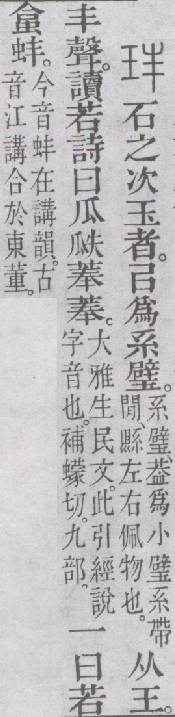 玤石之次玉者。㠯爲系璧。系璧、葢爲小璧系帶閒、縣左右佩物也。从王。
丰聲。讀若詩曰瓜瓞菶菶。大雅生民文。此引經說字音也。補蠓切。九部。一曰若
𧊧蚌。今音蚌在講韻。古音江講合於東董。